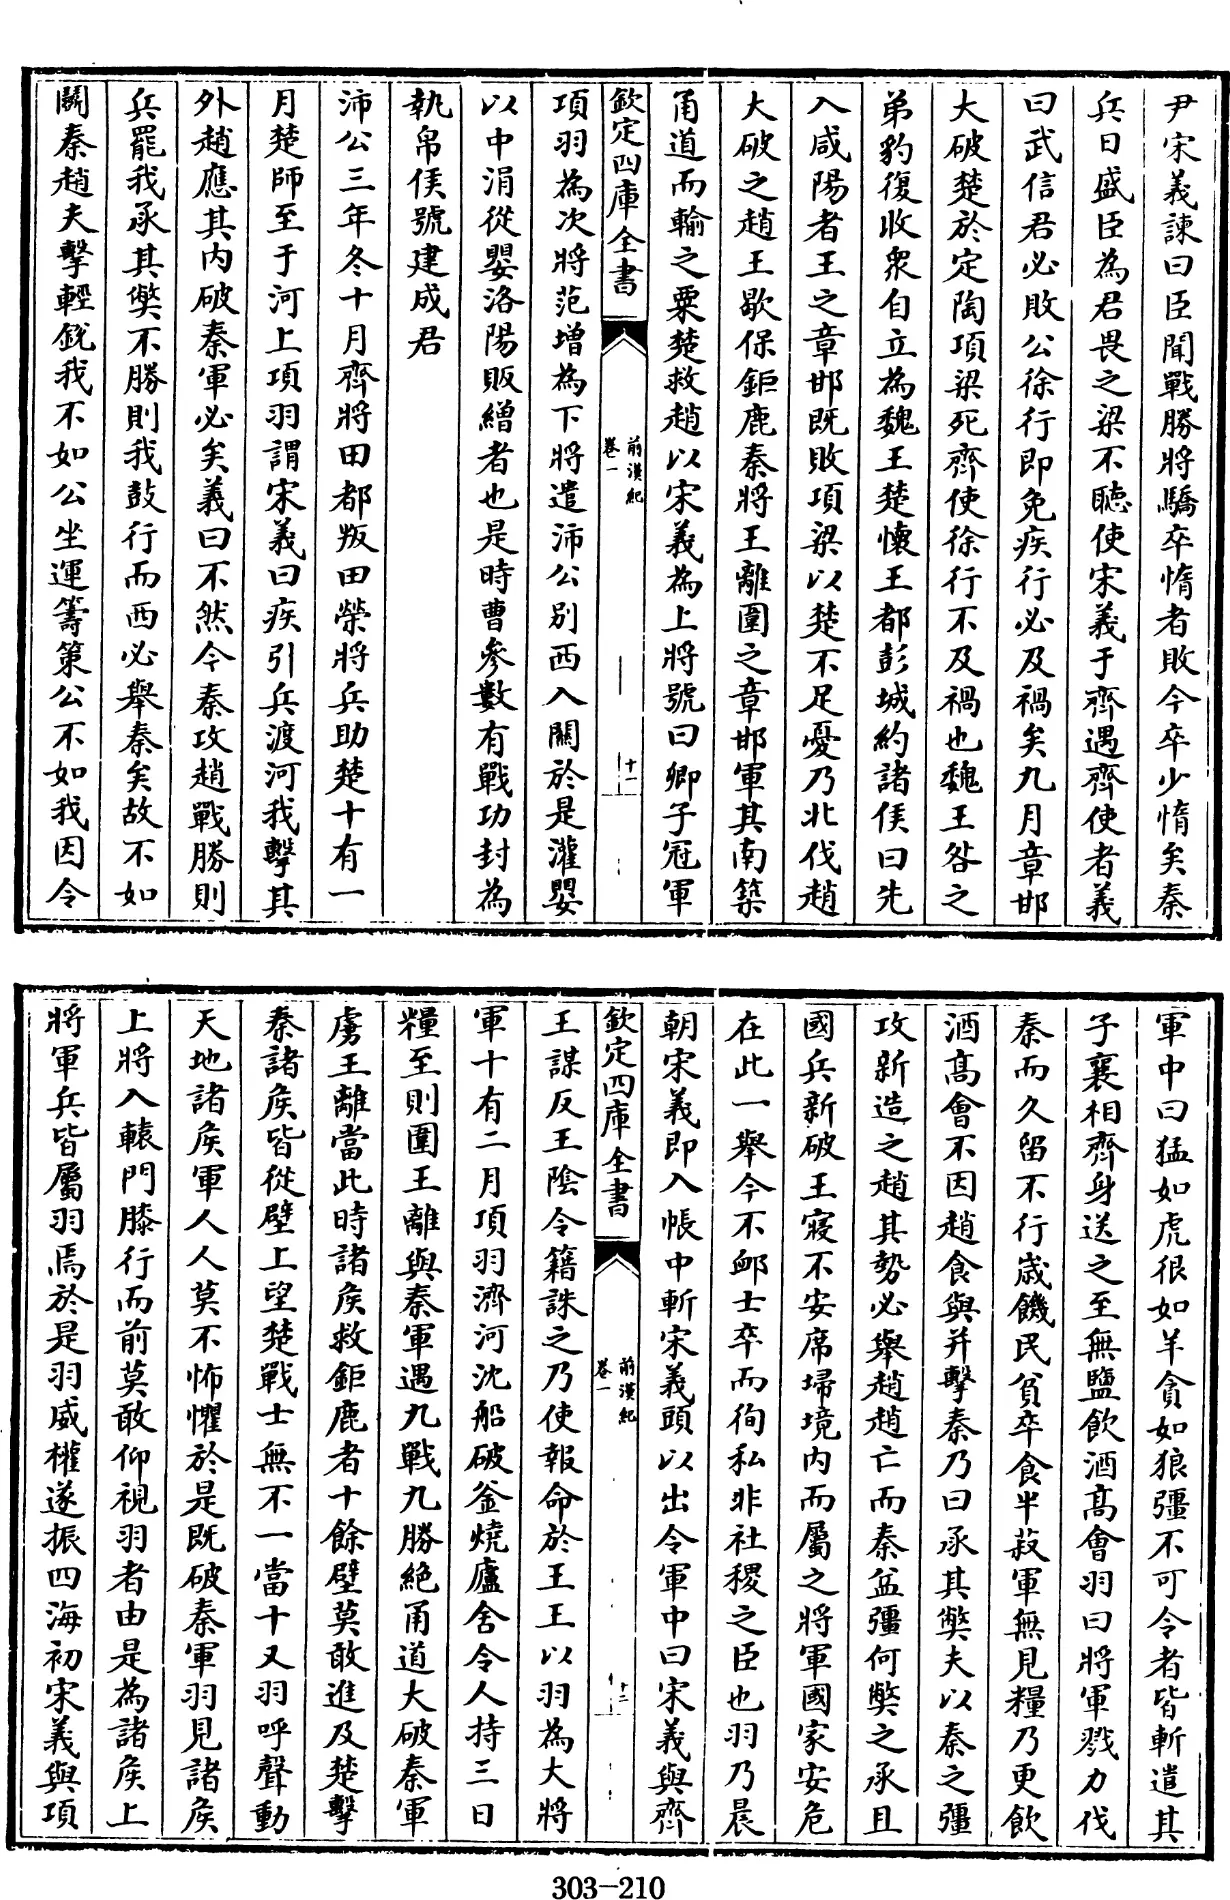 尹宋義諫曰臣聞戰勝將驕卒惰者敗今卒少惰矣秦
兵日盛臣為君畏之梁不聽使宋義于齊遇齊使者義
曰武信君必敗公徐行即免疾行必及禍矣九月章邯
大破楚於定陶項梁死齊使徐行不及禍也魏王咎之
弟豹復收衆自立為魏王楚懷王都彭城約諸侯曰先
入咸陽者王之章邯既敗項梁以楚不足憂乃北伐趙
大破之趙王歇保鉅鹿秦將王離圍之章邯軍其南築
甬道而輸之粟楚救趙以宋義為上將號曰卿子冠軍
欽定四庫全書
前漢紀
卷一
十一
項羽為次將范增為下將遣沛公別西入關於是灌嬰
以中涓從嬰洛陽販繒者也是時曹參數有戰功封為
執帛侯號建成君
沛公三年冬十月齊將田都叛田榮將兵助楚十有一
月楚師至于河上項羽謂宋義曰疾引兵渡河我擊其
外趙應其內破秦軍必矣義曰不然今秦攻趙戰勝則
兵罷我承其獘不勝則我鼓行而西必舉秦矣故不如
鬭秦趙夫擊輕銳我不如公坐運籌策公不如我因令
軍中曰猛如虎很如羊貪如狼彊不可令者皆斬遣其
子襄相齊身送之至無鹽飲酒髙會羽曰將軍戮力伐
秦而久留不行歳饑民貧卒食半菽軍無見糧乃更飲
酒髙會不因趙食與并擊秦乃曰承其獘夫以秦之彊
攻新造之趙其勢必舉趙趙亡而秦益彊何獘之承且
國兵新破王寢不安席埽境內而屬之將軍國家安危
在此一舉今不䘏士卒而徇私非社稷之臣也羽乃晨
朝宋義即入帳中斬宋義頭以出令軍中曰宋義與齊
欽定四庫全書
前漢紀
卷一
十二
王謀反王陰令籍誅之乃使報命於王王以羽為大將
軍十有二月項羽濟河沈船破釜燒廬舍令人持三日
糧至則圍王離與秦軍遇九戰九勝絶甬道大破秦軍
虜王離當此時諸侯救鉅鹿者十餘壁莫敢進及楚擊
秦諸侯皆從壁上望楚戰士無不一當十又羽呼聲動
天地諸侯軍人人莫不怖懼於是既破秦軍羽見諸侯
上將入轅門膝行而前莫敢仰視羽者由是為諸侯上
將軍兵皆屬羽焉於是羽威權遂振四海初宋義與項
303-210